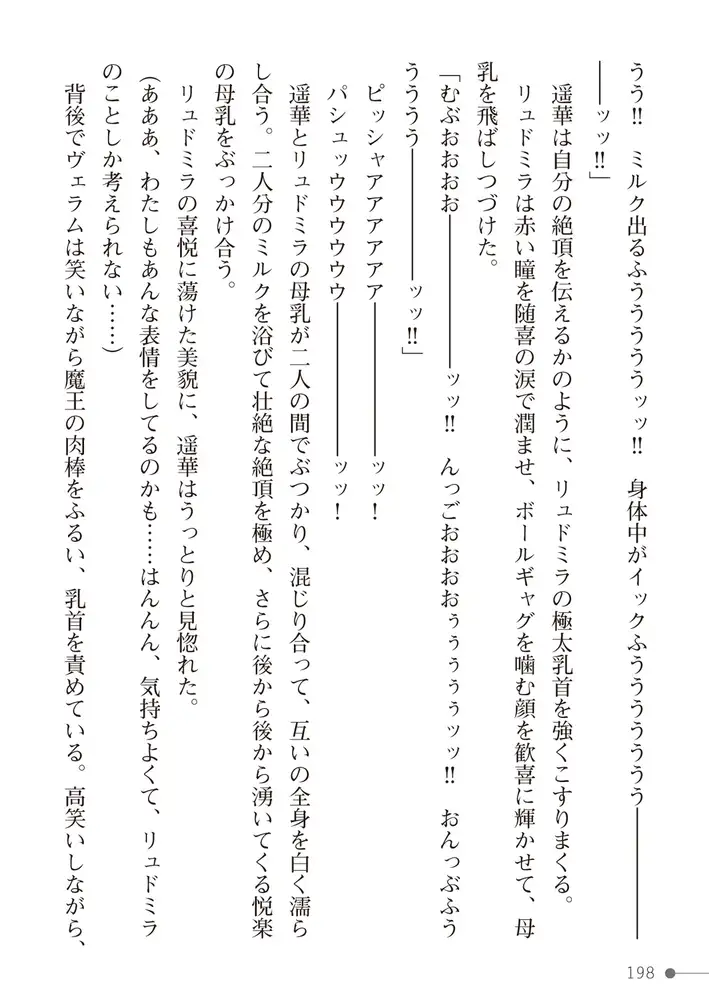 うう‼　ミルク出るふうううううッッ‼　身体中がイックふうううううううう――――
――ッッ‼」
　遥華は自分の絶頂を伝えるかのように、リュドミラの極太乳首を強くこすりまくる。
　リュドミラは赤い瞳を随喜の涙で潤ませ、ボールギャグを噛む顔を歓喜に輝かせて、母
乳を飛ばしつづけた。
「むぶおおおお――――――ッッ‼　んっごおおおおぅぅぅぅぅッッ‼　おんっぶふう
うううう――――――ッッ‼」
　ピッシャアアアアアアア――――――ッッ！
　パシュッウウウウウウウ――――――ッッ！
　遥華とリュドミラの母乳が二人の間でぶつかり、混じり合って、互いの全身を白く濡ら
し合う。二人分のミルクを浴びて壮絶な絶頂を極め、さらに後から後から湧いてくる悦楽
の母乳をぶっかけ合う。
　リュドミラの喜悦に蕩けた美貌に、遥華はうっとりと見惚れた。
（あああ、わたしもあんな表情をしてるのかも……はんんん、気持ちよくて、リュドミラ
のことしか考えられない……）
　背後でヴェラムは笑いながら魔王の肉棒をふるい、乳首を責めている。高笑いしながら、
198